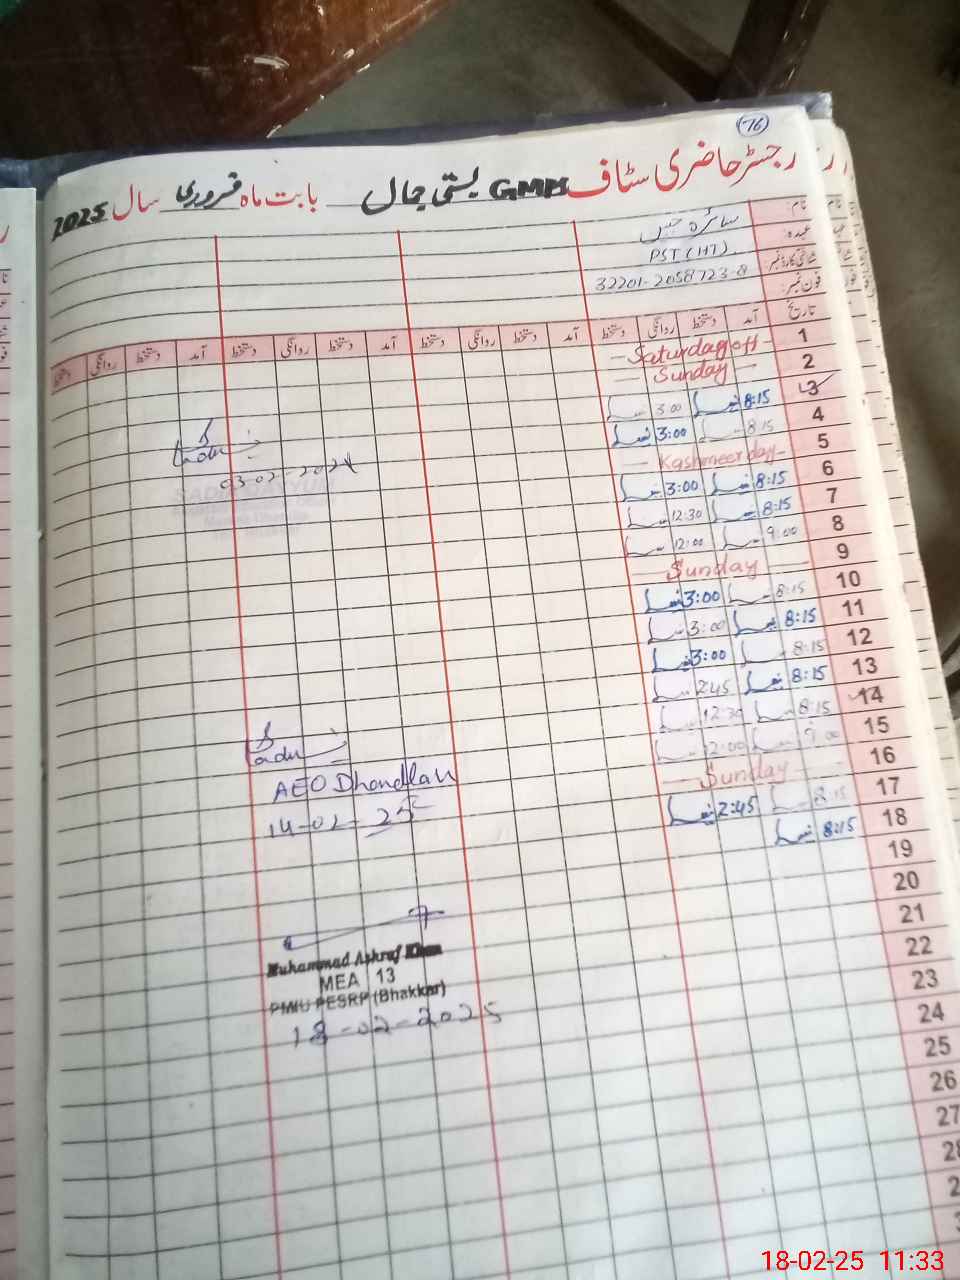 76
رجسٹر حاضری سٹاف GMPS بستی جال بابت ماہ فروری سال 2025
نام:
عہدہ: PST (HT)
شناختی کارڈ نمبر: 32201-2058723-8
فون نمبر:
تاریخ آمد دستخط روانگی دستخط آمد دستخط روانگی دستخط آمد دستخط روانگی دستخط آمد دستخط روانگی دستخط
1 Saturday off
2 Sunday
3 8:15 3:00
4 8:15 3:00
5 Kashmeer day
6 8:15 3:00
7 8:15 12:30
8 9:00 12:00
9 Sunday
10 8:15 3:00
11 8:15 3:00
12 8:15 3:00
13 8:15 2:45
14 8:15 12:30
15 9:00 12:00
16 Sunday
17 8:15 2:45
18 8:15
19
20
21
22
23
24
25
26
27
AEO Dhandlah
14-02-25
Muhammad Ashraf Khan
MEA 13
PMIU PESRP (Bhakkar)
18-02-2025
18-02-25 11:33